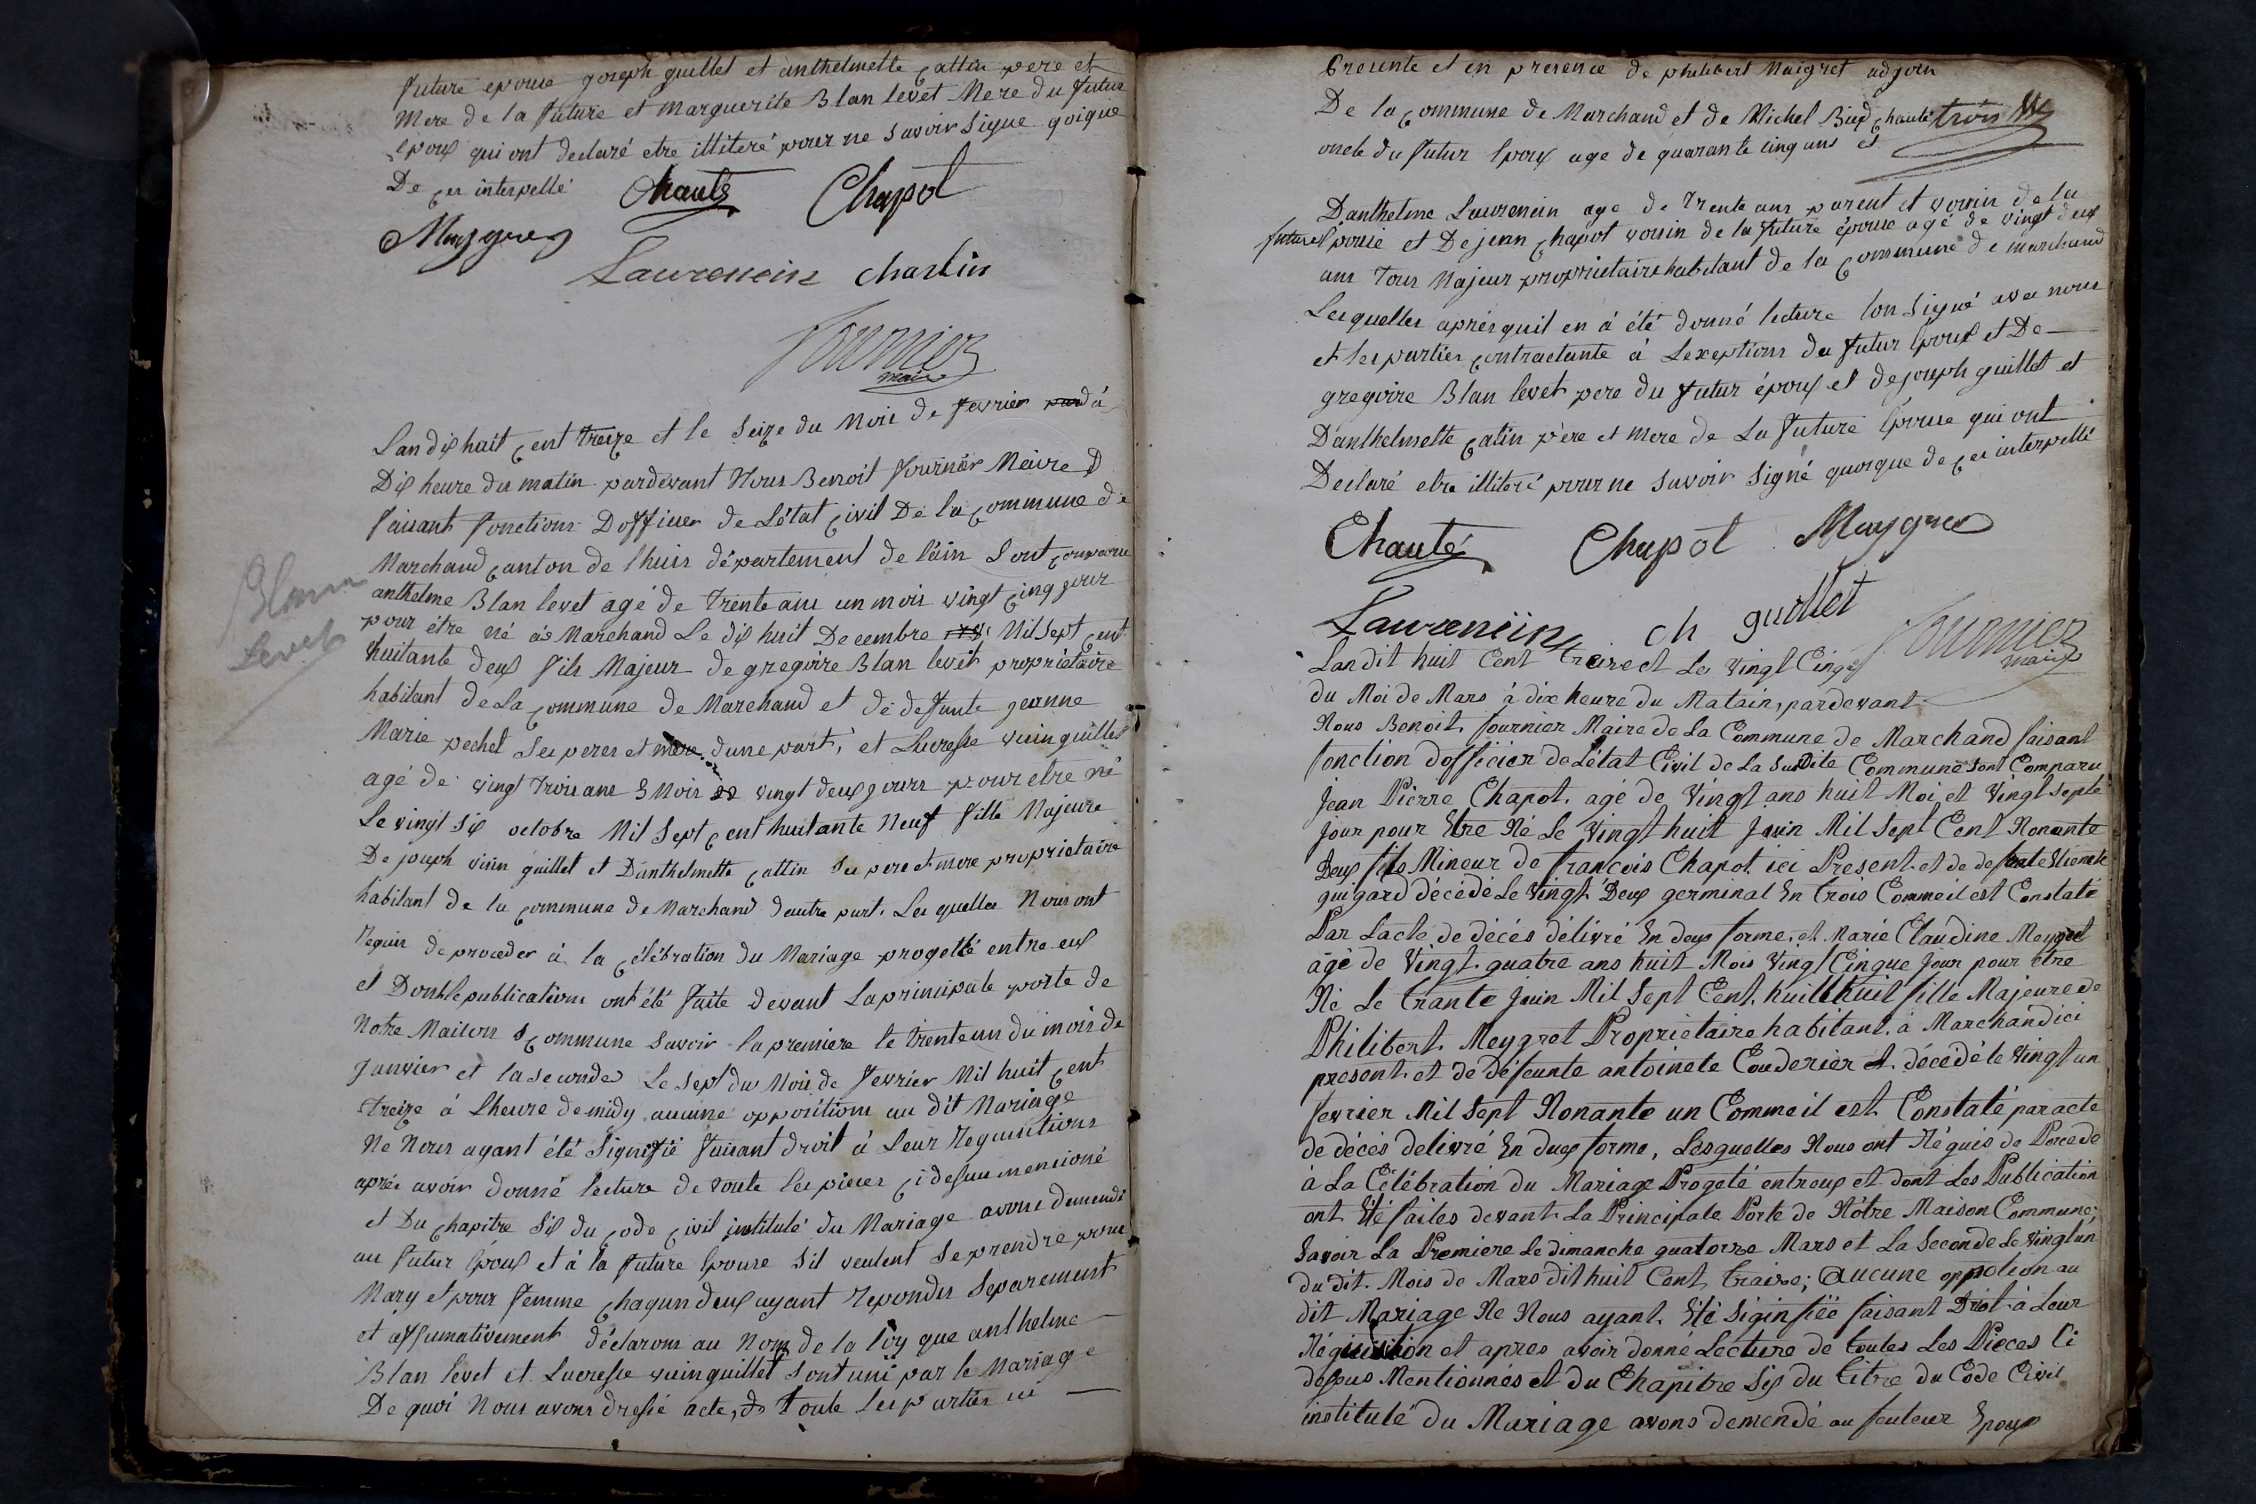 future epouse joseph guillet et anthelmette cattin pere et
Mere de la future et marguerite Blan levet Mere du futur
epoux qui ont declaré etre illiteré pour ne savoir signe qoique
De ces interpellé
Chanté Chapot
Meygres
Laurencin charlin
fournier
maire
Lan dix huit cent treize et le seize du Mois de fevrier à
Dix heure du matin pardevant Nous Benoit fournier Meire
faisant fonctions Dofficier de Létat civil De la commune de
Marchand canton de lhuis département de lain Sont comparu
anthelme Blan levet agé de trente ans un mois vingt cinq jour
pour être né à Marchand Le dix huit Decembre Mil sept cent
huitante deux fils Majeur de gregoire Blan levet propriétaire
habitant de La commune de Marchand et de defunte jeanne
Marie pechet ses peres et mere dune part, et Lucresse vuinguillet
agé de vingt trois ans 3 Mois vingt deux jours pour etre né
Le vingt six octobre Mil Sept cent huitante Neuf fille Majeure
De joseph vuin guillet et Danthelmette cattin Ses pere et mere proprietaire
habitant de la commune de Marchand dautre part. Les quelles Nous ont
requis de proceder à la célébration du Mariage progetté entre eux
et Dont le publications ont été faite devant La principale porte de
Notre Maison commune savoir la premiere le trente un du mois de
Janvier et la seconde Le sept du Mois de fevrier Mil huit cent
treize à Lheure de midy aucune oppositions au dit Mariage
Ne Nous ayant été Signifié faisant droit à Leur Requisitions
aprés avoir donné lecture de toute les pieces ci desus mensioné
et Du chapitre Six du code civil institulé du Mariage avons demendé
au futur Epoux et à la future Epouse Sil veulent Se prendre pour
Mary et pour femme chaqun deux ayant repondu Separement
et affirmativement déclarons au Nom de la loy que anthelme
Blan levet et Lucresse vuinguillet Sont uni par le Mariage
De quoi Nous avons dressé acte, de toute les parties ici
Blan
Levet
Presente et en presence de philibert Maigret adjoin
De la commune de Marchand et de Michel Biid chanté
oncle du futur Epoux age de quarante cinq ans et
Danthelme Laurencin age de trente ans parent et voisin de la
future Epouse et De jean chapot voisin de la future épouse agé de vingt deux
ans Tous Majeur proprietaire habitant de la commune de marchand
Lesquelles aprés quil en à été donné lecture lon Signé avec nous
et les parties contractante à Lexeptions du futur Epoux et De
gregoire Blan levet pere du futur époux et de joseph guillet et
Danthelmette catin père et mere de La future Epouse qui ont
Declaré etre illiteré pour ne savoir Signé quoique de ces interpellé
Chanté Chapot Meygres
Laurencin ch guillet fournier
maire
Lan dit huit Cent treize et Le vingt Cinqe
du Moi de Mars à dix heure du Matain, pardevant
Nous Benoit fournier Maire de La Commune de Marchand faisant
fonction dofficier de Létat Civil de La Susdite Commune sont Comparu
Jean Pierre Chapot. agé de Vingt ans huit Moi et Vingt Septe
Jour pour Etre Né Le Vingt huit Juin Mil Sept Cent Nonante
Deux fils Mineur de francois Chapot ici Present et de defunte Etienete
guigard décédé Le Vingt Deux germinal En trois Comme il est Constaté
Par Lacte de décés délivré En deux forme, et Marie Claudine Meygret
âgé de Vingt quatre ans huit Mois Vingt Cinque Jour pour être
Né Le trante Juin Mil Sept Cent huitthuit fille Majeure de
Philibert Meygret Proprietaire habitant à Marchand ici
present et de défeunte antoinete Couderier décédé le Vingt un
fevrier Mil Sept Nonante un Comme il est Constaté par acte
de décès delivré En dux forme, Lesquelles Nous ont Réquis de Porcede
à La Célébration du Mariage Progeté entreux et dont Les Publication
ont Eté faites devant La Principale Porte de Nôtre Maison Commune
Savoir La Premiere Le dimanche quatorze Mars et La Seconde Le Vingt un
du dit Mois de Mars dit huit Cent traize; aucune oppotion au
dit Mariage Ne Nous ayant Eté Siginfiée faisant Driot à Leur
Réquisition et apres avoir donné Lecture de toutes Les Pieces Ci
dessus Mentionnés et du Chapitre Six du titre du Code Civil
institulé du Mariage avons demendé au feuteur Epoux